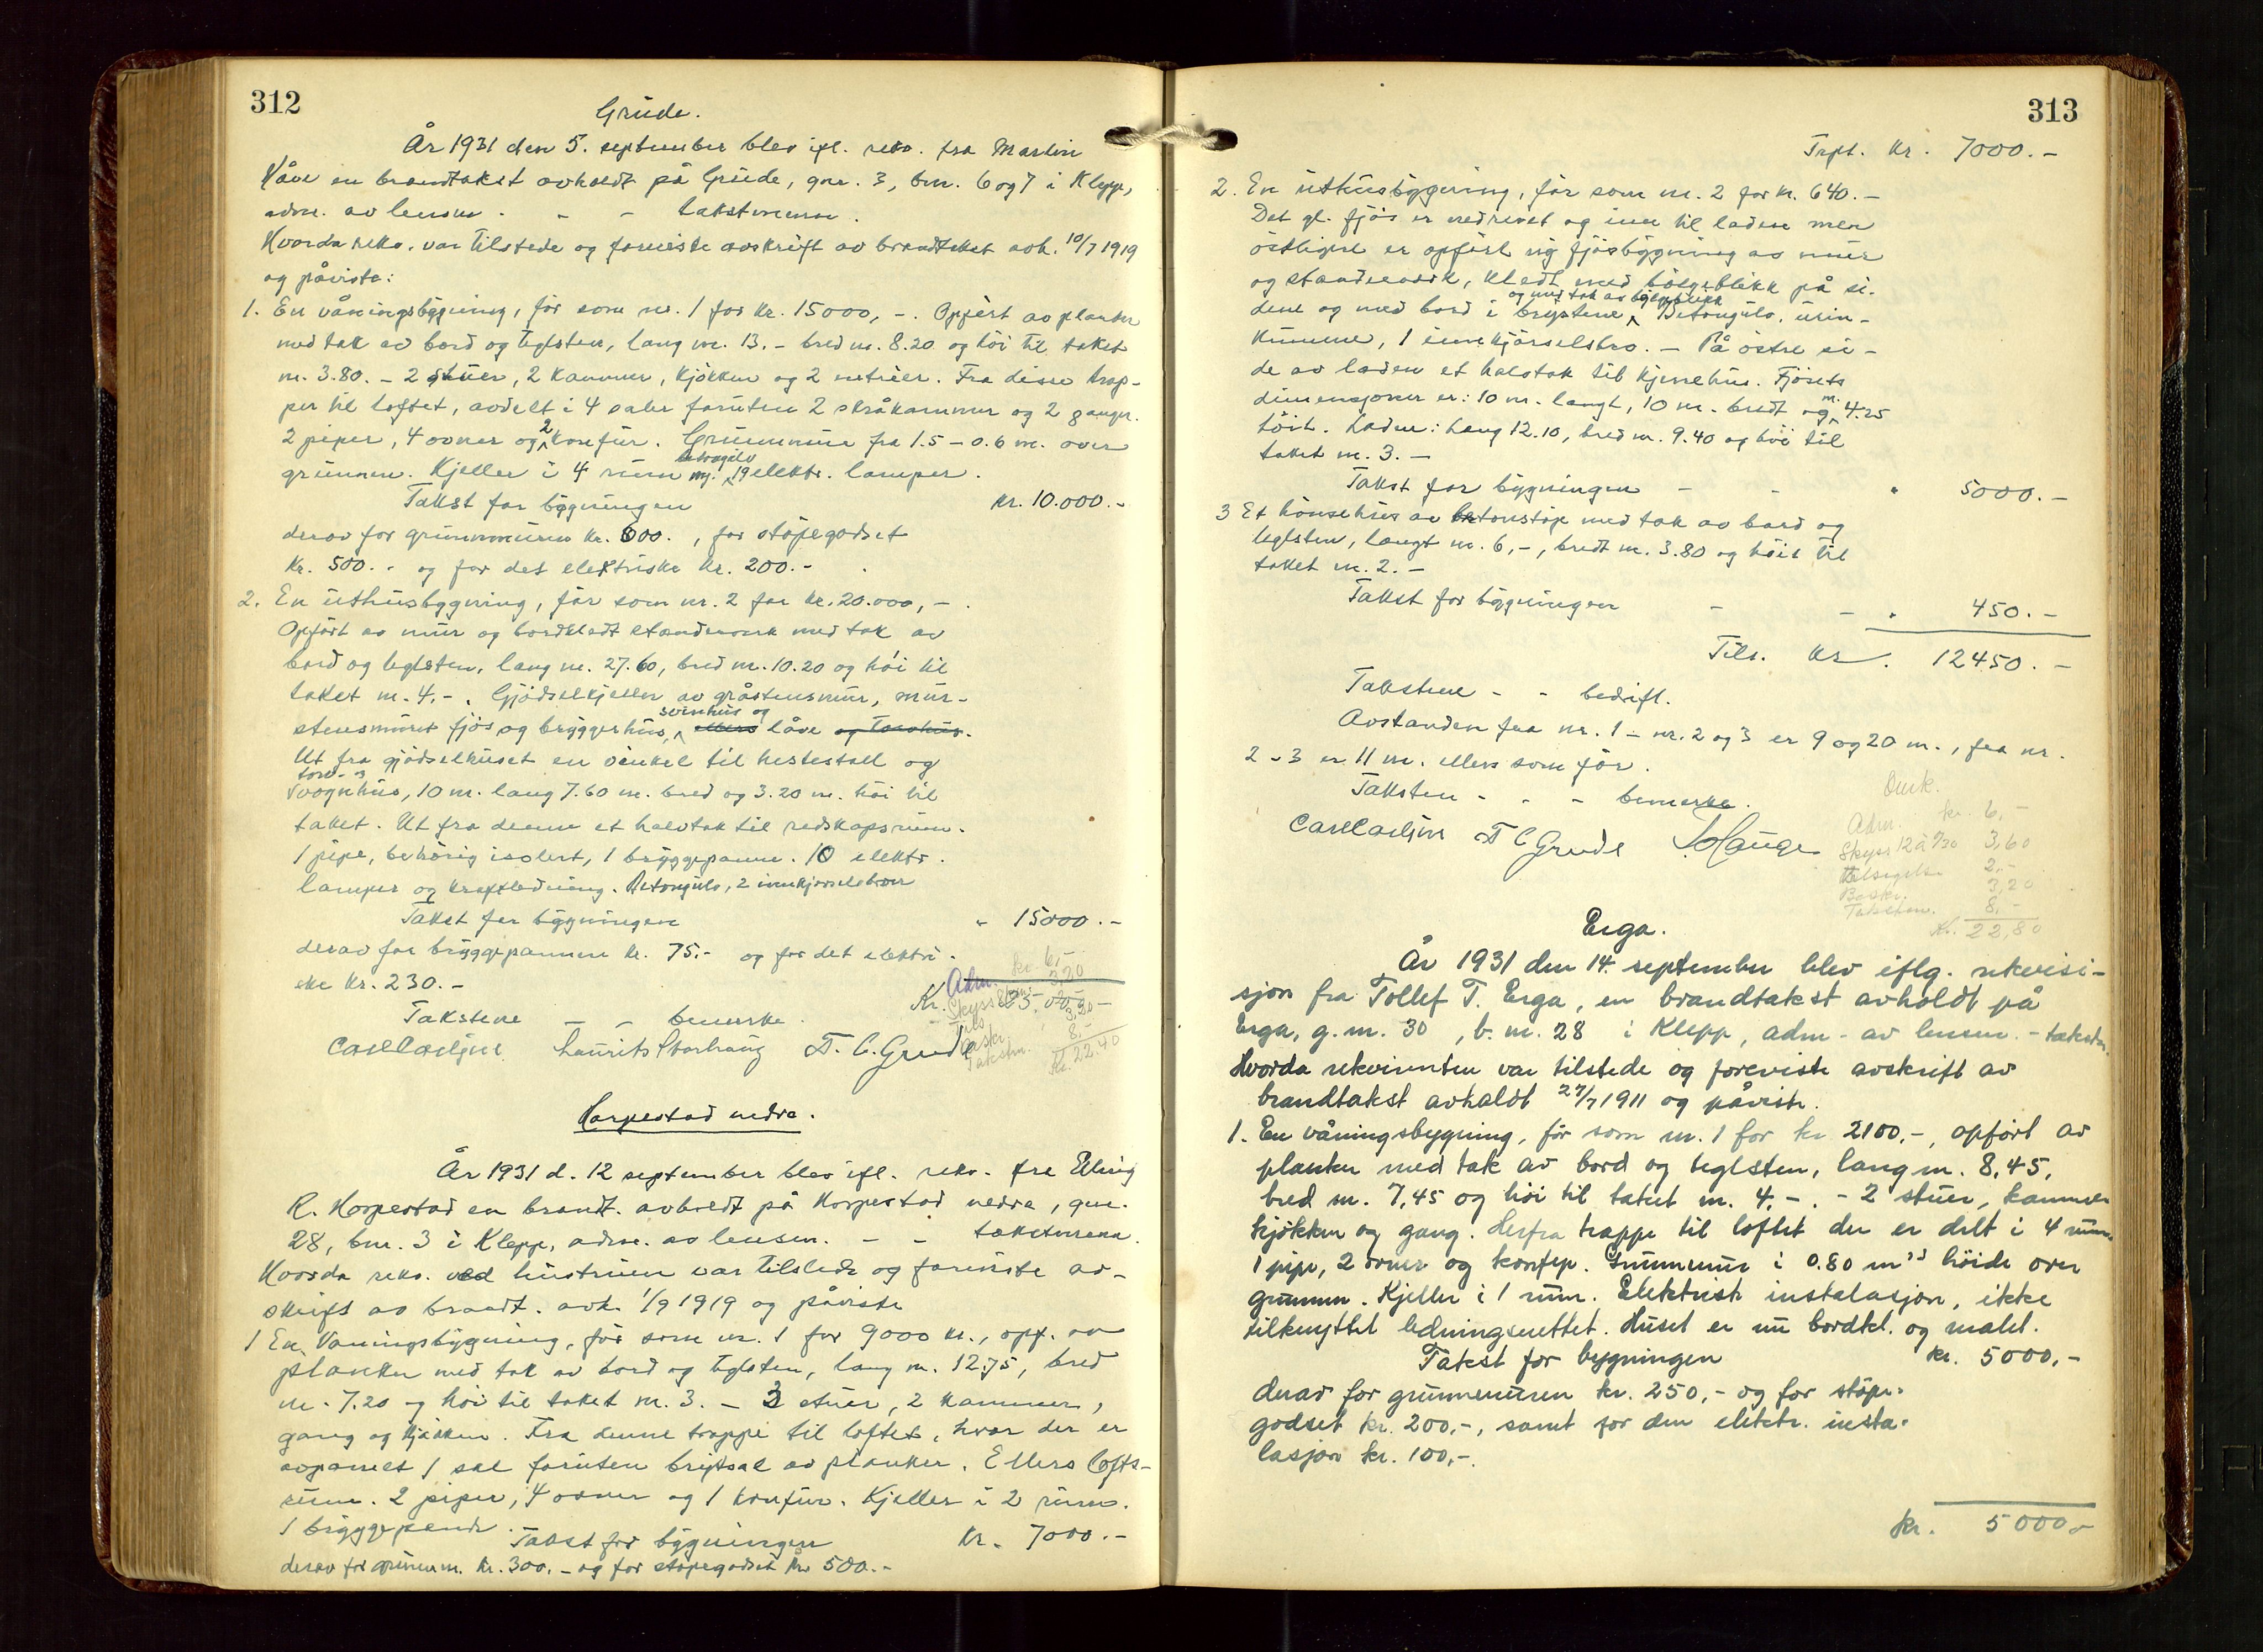 312
Grude.
År 1931 den 5. september blev ifl. rekv. fra Martin
Håve en brandtakst avholdt på Grude, gnr. 3, bnr. 6 og 7 i Klepp,
adm. av lensm. - - - takstmenn.
Hvorda rekv. var tilstede og foreviste avskrift av brandtakst avh. 10/7 1919
og påviste:
1. En våningsbygning, før som nr. 1 for kr. 15000,-. Opført av planker
med tak av bord og teglsten, lang m. 13.- bred m. 8.20 og høi til taket
m. 3.80. - 2 stuer, 2 kammer, kjøkken og 2 entréer. Fra disse trap-
per til loftet, avdelt i 4 saler foruten 2 skråkammer og 2 ganger.
2 piper, 4 ovner og 2 komfur. Grunnmur fra 1.5 - 0.6 m. over
grunnen. Kjeller i 4 rum m. betongulv 19 elektr. lamper.
Takst for bygningen kr. 10.000.-
derav for grunnmuren kr. 600. , for støpegodset
kr. 500.- og for det elektriske kr. 200.-
2. En uthusbygning, før som nr. 2 for kr. 20.000,-.
Opført av mur og bordkledt standerverk med tak av
bord og teglsten, lang m. 27.60, bred m. 10.20 og høi til
taket m. 4.-. Gjødselkjeller av gråstensmur, mur-
stensmuret fjøs og bryggerhus, svinhus og ellers låve og torvhus.
Ut fra gjødselhuset en vinkel til hestestall og
torv- og vognhus, 10 m. lang 7.60 m. bred og 3.20 m. høi til
taket. Ut fra denne et halvtak til redskapsrum.
1 pipe, behørig isolert, 1 bryggepanne. 10 elektr.
lamper og kraftledning. Betongulv, 2 innkjørselsbroer
Takst for bygningen " 15000.-
derav for bryggepannen kr. 75.- og for det elektri-
ske kr. 230.-
Kr. 25.000.-
Adm. kr. 6,-
Skyss 3,20
Tils. 2,-
Beskr. 3,20
Takstm. 8,-
Kr. 22.40
Takstene - - bemerke.
Carl Carlsen Laurits Storhaug T. C. Grude
Horpestad nedre.
År 1931 d. 12 september blev ifl. rekv. fra Elling
R. Horpestad en brandt. avholdt på Horpestad nedre, gnr.
28, bnr. 3 i Klepp, adm. av lensm. - - takstmenn.
Hvorda rekv. ved hustruen var tilstede og foreviste av-
skrift av brandt. avh. 1/9 1919 og påviste
1 En Våningsbygning, før som nr. 1 for 9000 kr., opf. av
planker med tak av bord og teglsten, lang m. 12.75, bred
m. 7.20 og høi til taket m. 3. - 3 stuer, 2 kammer,
gang og kjøkken. Fra denne trappe til loftet, hvor der er
avpanelt 1 sal foruten brystsal av planker. Ellers lofts-
rum. 2 piper, 4 ovner og 1 komfur. Kjeller i 2 rum.
1 bryggepanne.
Takst for bygningen Kr. 7000.-
derav for grunnm. kr. 300.- og for støpegodset kr. 500.-
313
Trpt. Kr. 7000.-
2. En uthusbygning, før som nr. 2 for kr. 640.-
Det gl. fjøs er nedrevet og inn til laden men
østligere er opført ny fjøsbygning av mur
og standerverk, kledt med bølgeblikk på si-
dene og med bord i brystene og med tak av bølgeblikk Betongulv, urin-
kumme, 1 innkjørselsbro. - På østre si-
de av laden et halvtak til kjerrehus. Fjøsets
dimensjoner er: 10 m. langt, 10 m. bredt og m. 4.25
høit. Laden: lang 12.10, bred m. 9.40 og høi til
taket m. 3.-
Takst for bygningen - - " 5000.-
3 Et hønsehus av betonstøp med tak av bord og
teglsten, langt m. 6,-, bredt m. 3.80 og høit til
taket m. 2.-
Takst for bygningen - - " 450.-
Tils. kr. 12450.-
Takstene - - bedrift.
Avstanden fra nr. 1 - nr. 2 og 3 er 9 og 20 m., fra nr.
2 - 3 er 11 m. ellers som før.
Taksten - - - bemerke.
Carl Carlsen T C Grude Hauge
Omk.
Adm. kr. 6,-
Skyss 12 à 0/30 3,60
Tilsigelse 2,-
Beskr. 3,20
Takstm. 8,-
Kr. 22,80
Erga.
År 1931 den 14. september blev iflg. rekvisi-
sjon fra Tollef T. Erga, en brandtakst avholdt på
Erga, g.nr. 30 , b.nr. 28 i Klepp, adm - av lensm. - takstm.
Hvorda rekvirenten var tilstede og foreviste avskrift av
brandtakst avholdt 27/7 1911 og påviste.
1. En våningsbygning, før som nr. 1 for kr 2100.-, opført av
planker med tak av bord og teglsten, lang m. 8,45,
bred m. 7,45 og høi til taket m. 4.-. - 2 stuer, kammer
kjøkken og gang. Herfra trappe til loftet der er delt i 4 rum.
1 pipe, 2 ovner og komfyr. Grunnmur i 0.80 m's høide over
grunnen. Kjeller i 1 rum. Elektrisk instalasjon, ikke
tilknyttet ledningsnettet. Huset er nu bordkl. og malet.
Takst for bygningen kr. 5000,-
derav for grunnmuren kr. 250,- og for støpe-
godset kr. 200,-, samt for den elektr. insta-
lasjon kr. 100,-.
kr. 5000,-